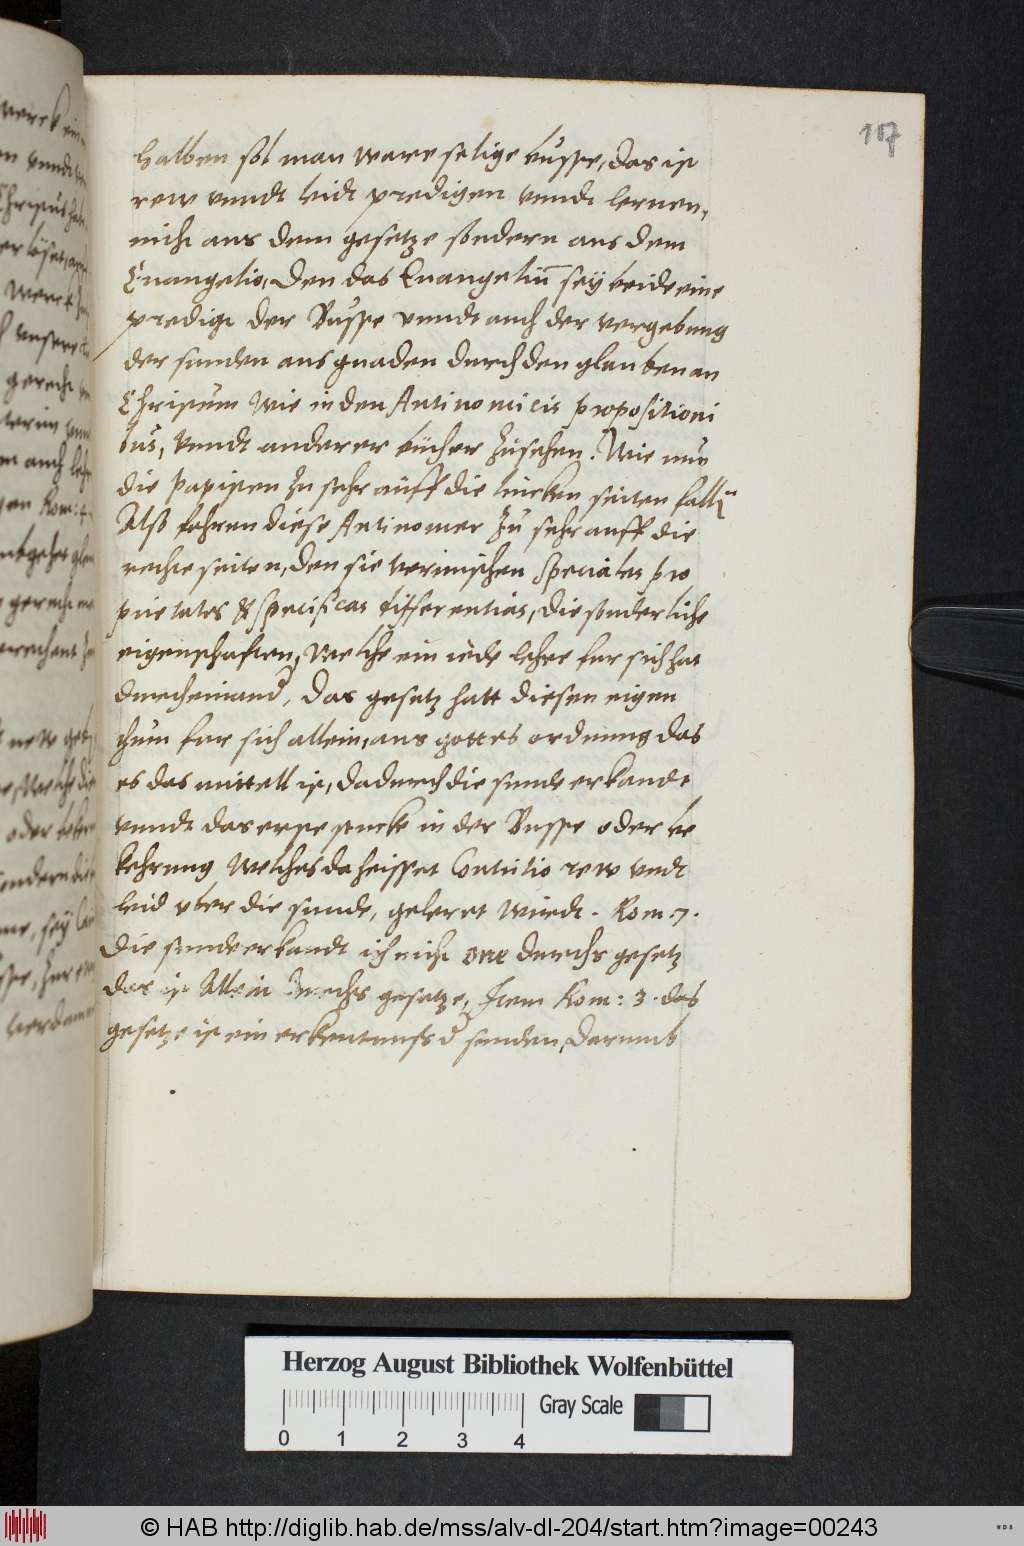 117
halben sol man ware selige busse, das ist
rew vnndt leidt predigen vnndt lernen,
nicht aus dem gesetze sondern aus dem
Euangelio, Den das Euangeliū sey beide eine
predigt der Busse vnndt auch der vergebung
der sunden aus gnaden durch den glauben an
Christum Wie in den Antinomicis propositioni
bus, vnndt anderer bücher zusehen. Wie nun
die Papisten zu sehr auff die lincken seiten fallē
Also fahren diese Antinomer zu sehr auff die
rechte seiten, den sie vermischen speciales pro
prietates & specificas differentias, die sonderliche
eigenschafften, Welche ein iede lehre fur sich hat
durcheinand, Das gesetz hatt diesen eigen
thum fur sich allein, aus gottes ordnung das
es das mittell ist, dadurch die sunde erkandt
vnndt das erste stucke in der Busse oder be
kehrung Welches da heisset Contritio rew vndt
leid vber die sunde, geleret wirdt. Rom. 7.
Die sunde erkandt ich nicht one durchs gesetz
das ist Allein durchs gesetze, Item Rom: 3. das
gesetze ist ein erkentnuss d sunden, Darumb
Herzog August Bibliothek Wolfenbüttel
0 1 2 3 4
Gray Scale
© HAB http://diglib.hab.de/mss/alv-dl-204/start.htm?image=00243